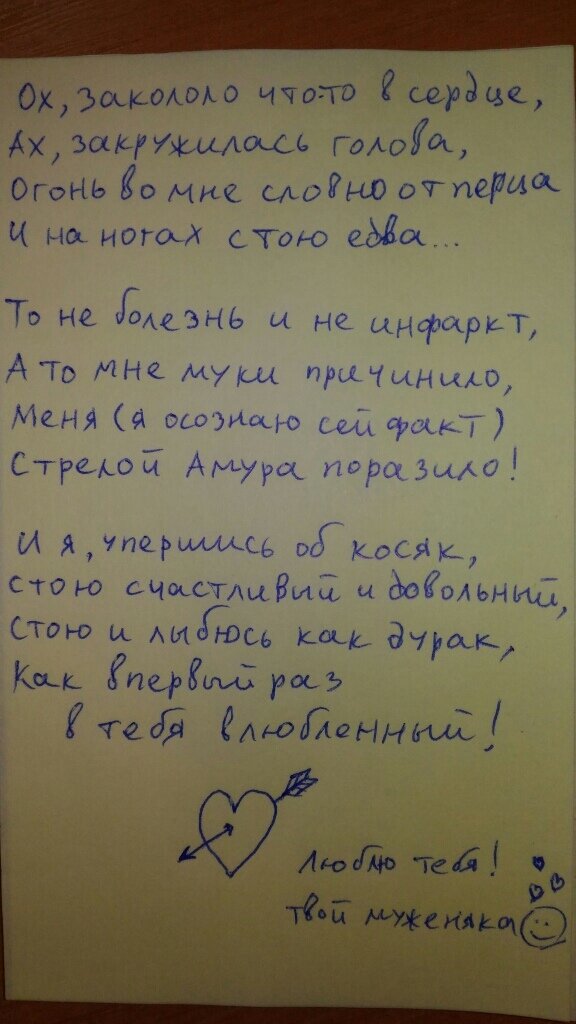 Ох, закололо что-то в сердце,
Ах, закружилась голова,
Огонь во мне словно от перца
И на ногах стою едва...
То не болезнь и не инфаркт,
А то мне муки причинило,
Меня (я осознаю сей факт)
Стрелой Амура поразило!
И я, упершись об косяк,
Стою счастливый и довольный,
Стою и лыбюсь как дурак,
Как впервый раз
в тебя влюбленный!
Люблю тебя!
твой муженяка